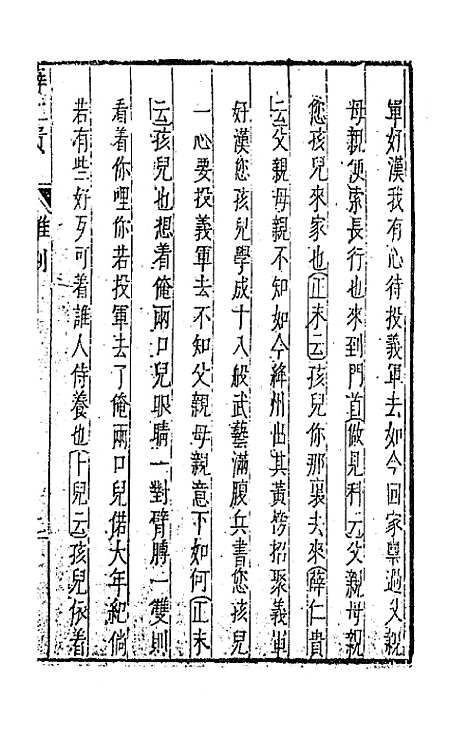 軍好漢我有心待投義軍去如今回家稟過父親
母親便索長行也來到門首做見科云父親母親
您孩兒來家也正末云孩兒你那裏去來薛仁貴
云父親母親不知如今絳州出其黃榜招聚義軍
好漢您孩兒學成十八般武藝滿腹兵書您孩兒
一心要投義軍去不知父親母親意下如何正末
云孩兒也想着俺兩口兒眼睛一對臂膊一雙則
看着你哩你若投軍去了俺兩口兒偌大年紀倘
若有些好歹可着誰人侍養也卜兒云孩兒依着
薛仁貴
雜劇